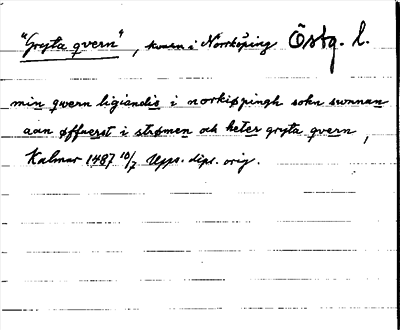 "Gryta qvern", kvarn i Norrköping Östg. l.
min qwern ligiandis i norkiøpingh sokn swnnan
aan øffuerst i strømen och heter gryta qvern,
Kalmar 1487 10/7 Upps. dipl. orig.